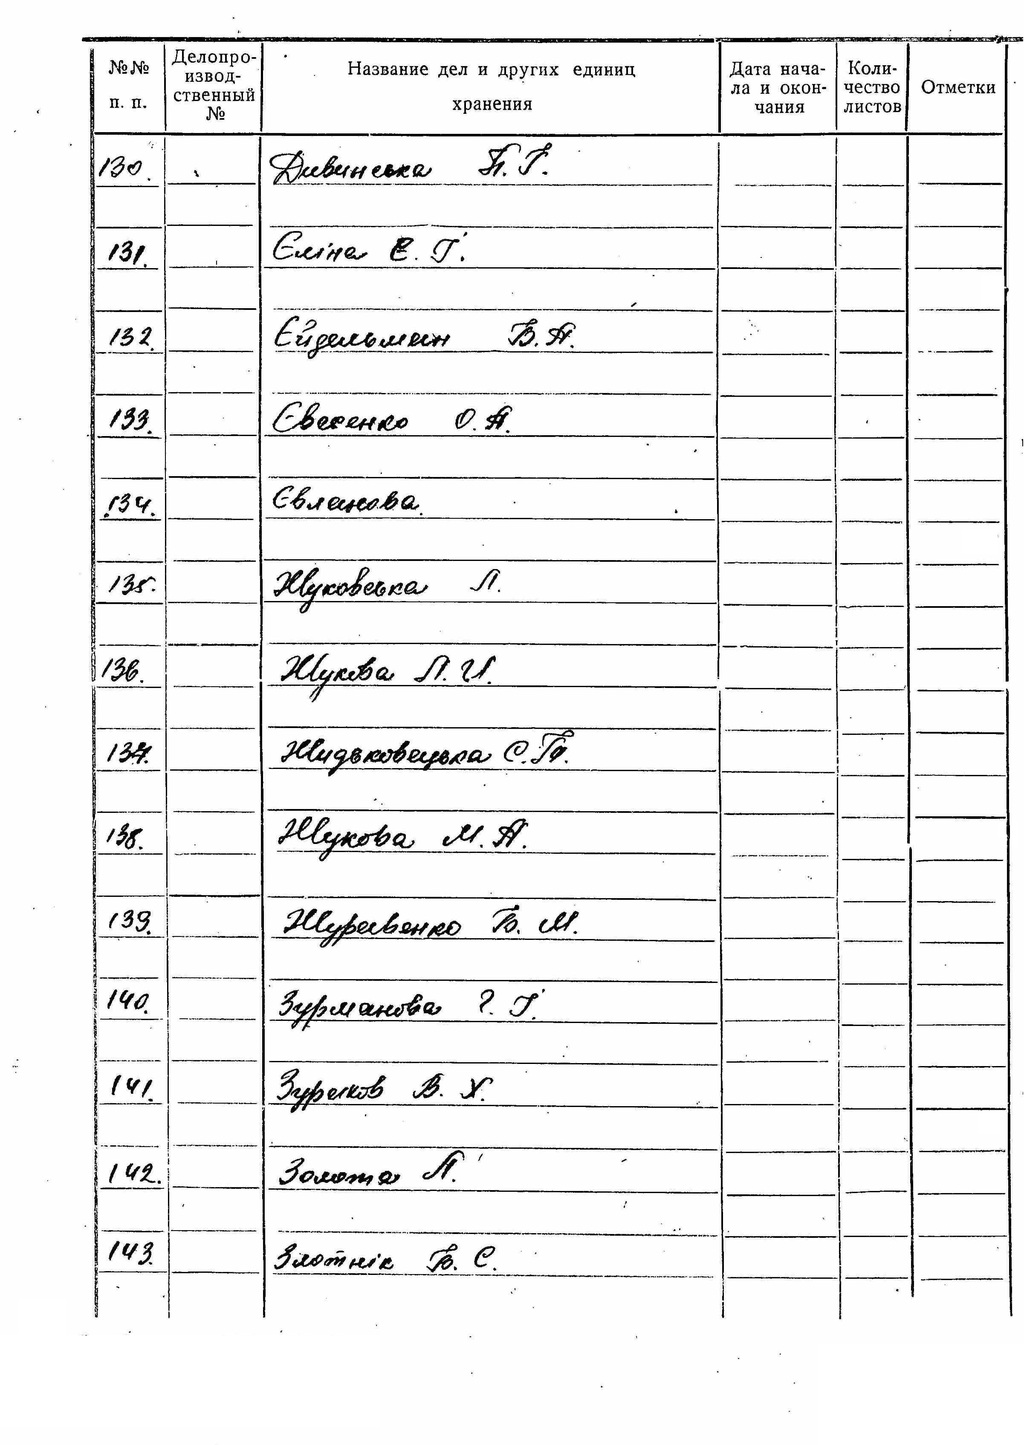 №№ п. п. Делопроизводственный № Название дел и других единиц хранения Дата начала и окончания Количество листов Отметки
130. Дивинська П. Г.
131. Єліна Е. Г.
132. Ейдельман Б. А.
133. Євсеенко О. А.
134. Євланова
135. Жуковська Л.
136. Жукова Л. И.
137. Жидьковецька С.
138. Жукова М. А.
139. Журавенко Б. М.
140. Зурманова Г. Г.
141. Зураков В. Х.
142. Золота Л.
143. Злотнік Б. С.